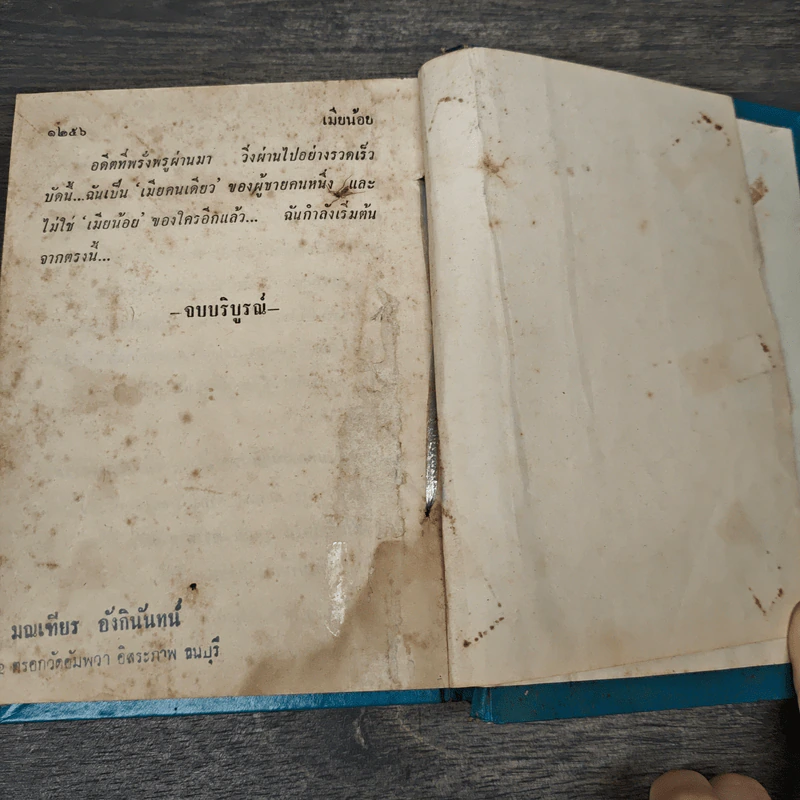 ๑๒๕๖ เมียน้อย
อดีตที่พรั่งพรูผ่านมา วิ่งผ่านไปอย่างรวดเร็ว
บัดนี้...ฉันเป็น ‘เมียคนเดียว’ ของผู้ชายคนหนึ่ง และ
ไม่ใช่ ‘เมียน้อย’ ของใครอีกแล้ว... ฉันกำลังเริ่มต้น
จากตรงนี้...
–จบบริบูรณ์–
มณเฑียร อังกินันทน์
ตรอกวัดอัมพวา อิสระภาพ ธนบุรี